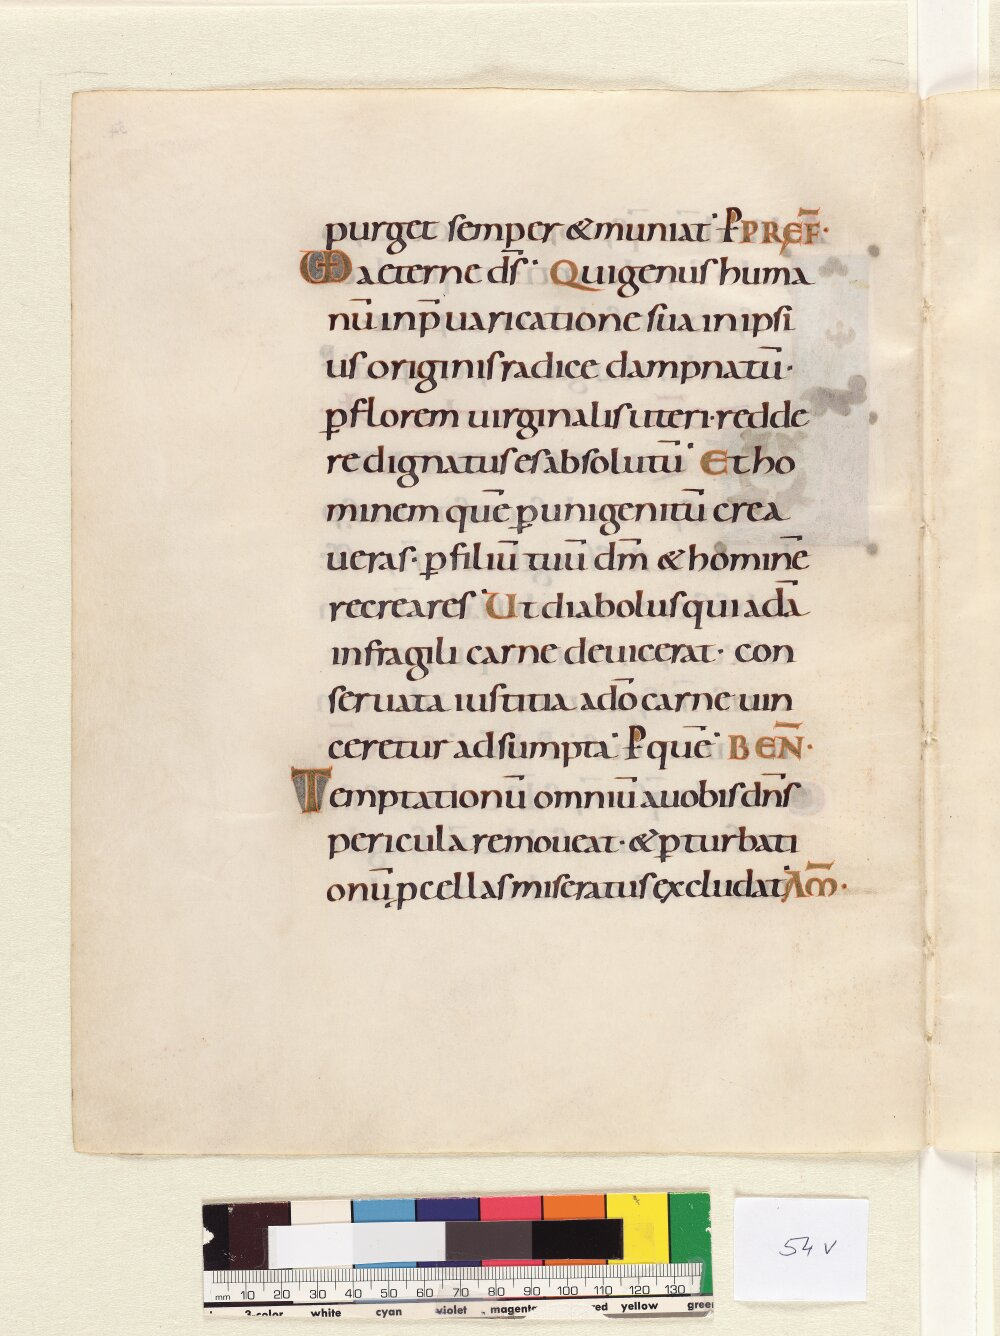 purget semper & muniat· P PREF̄·
UD aeterne ds̄· Qui genus huma
nū in p̄uaricatione sua in ipsi
us originis radice dampnatū·
ꝑ florem uirginalis uteri· redde
re dignatus es absolutū· Et ho
minem quē ꝑ unigenitū crea
ueras· ꝑ filiū tuū dm̄ & hominē
recreares· Ut diabolus qui adā
in fragili carne deuicerat· con
seruata iustitia a dō carne uin
ceretur adsumpta· P quē· BEN̄·
Temptationū omniū a uobis dn̄s
pericula remoueat· & ꝑturbati
onū pcellas miseratus excludat· AM̄·
54 v
mm 10 20 30 40 50 60 70 80 90 100 110 120 130
3-color white cyan violet magenta red yellow green